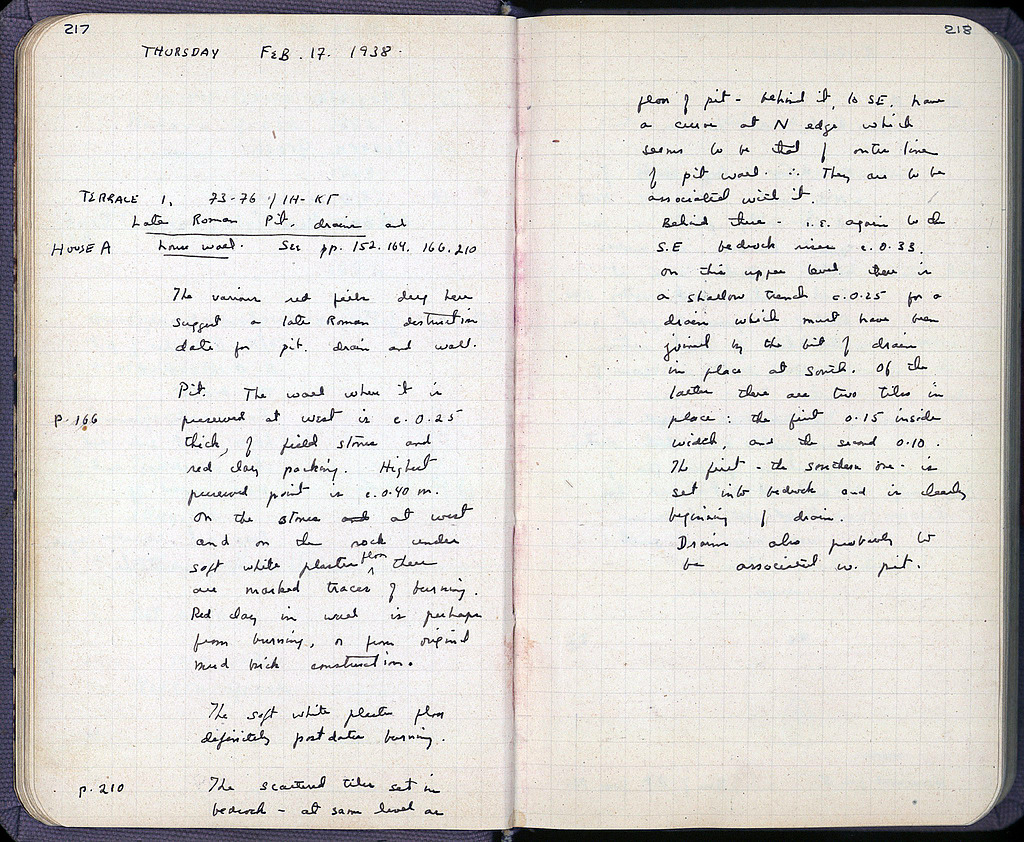 217
THURSDAY FEB. 17. 1938.
TERRACE 1. 73-76 / IH-KT
Late Roman Pit, drain and
HOUSE A house wall. See pp. 152. 164. 166. 210
The various red fills dug here
suggest a late Roman destruction
date for pit, drain and wall.
Pit. The wall where it is
p. 166 preserved at west is c. 0.25
thick, of field stones and
red clay packing. Highest
preserved point is c. 0.40 m.
On the stones at west
and on the rock under
soft white plaster floor there
are marked traces of burning.
Red clay in wall is perhaps
from burning, or from original
mud brick construction.
The soft white plaster floor
definitely postdates burning.
p. 210 The scattered tiles set in
bedrock - at same level as
218
floor of pit - behind it, to SE, have
a curve at N edge which
seems to be that of outer line
of pit wall. ∴ They are to be
associated with it.
Behind these - i.e. again to the
S.E bedrock rises c. 0.33.
On this upper level there is
a shallow trench c. 0.25 for a
drain which must have been
joined by the bit of drain
in place at South. Of the
latter there are two tiles in
place: the first 0.15 inside
width, and the second 0.10.
The first - the southern one - is
set into bedrock and is clearly
beginning of drain.
Drain also probably to
be associated w. pit.